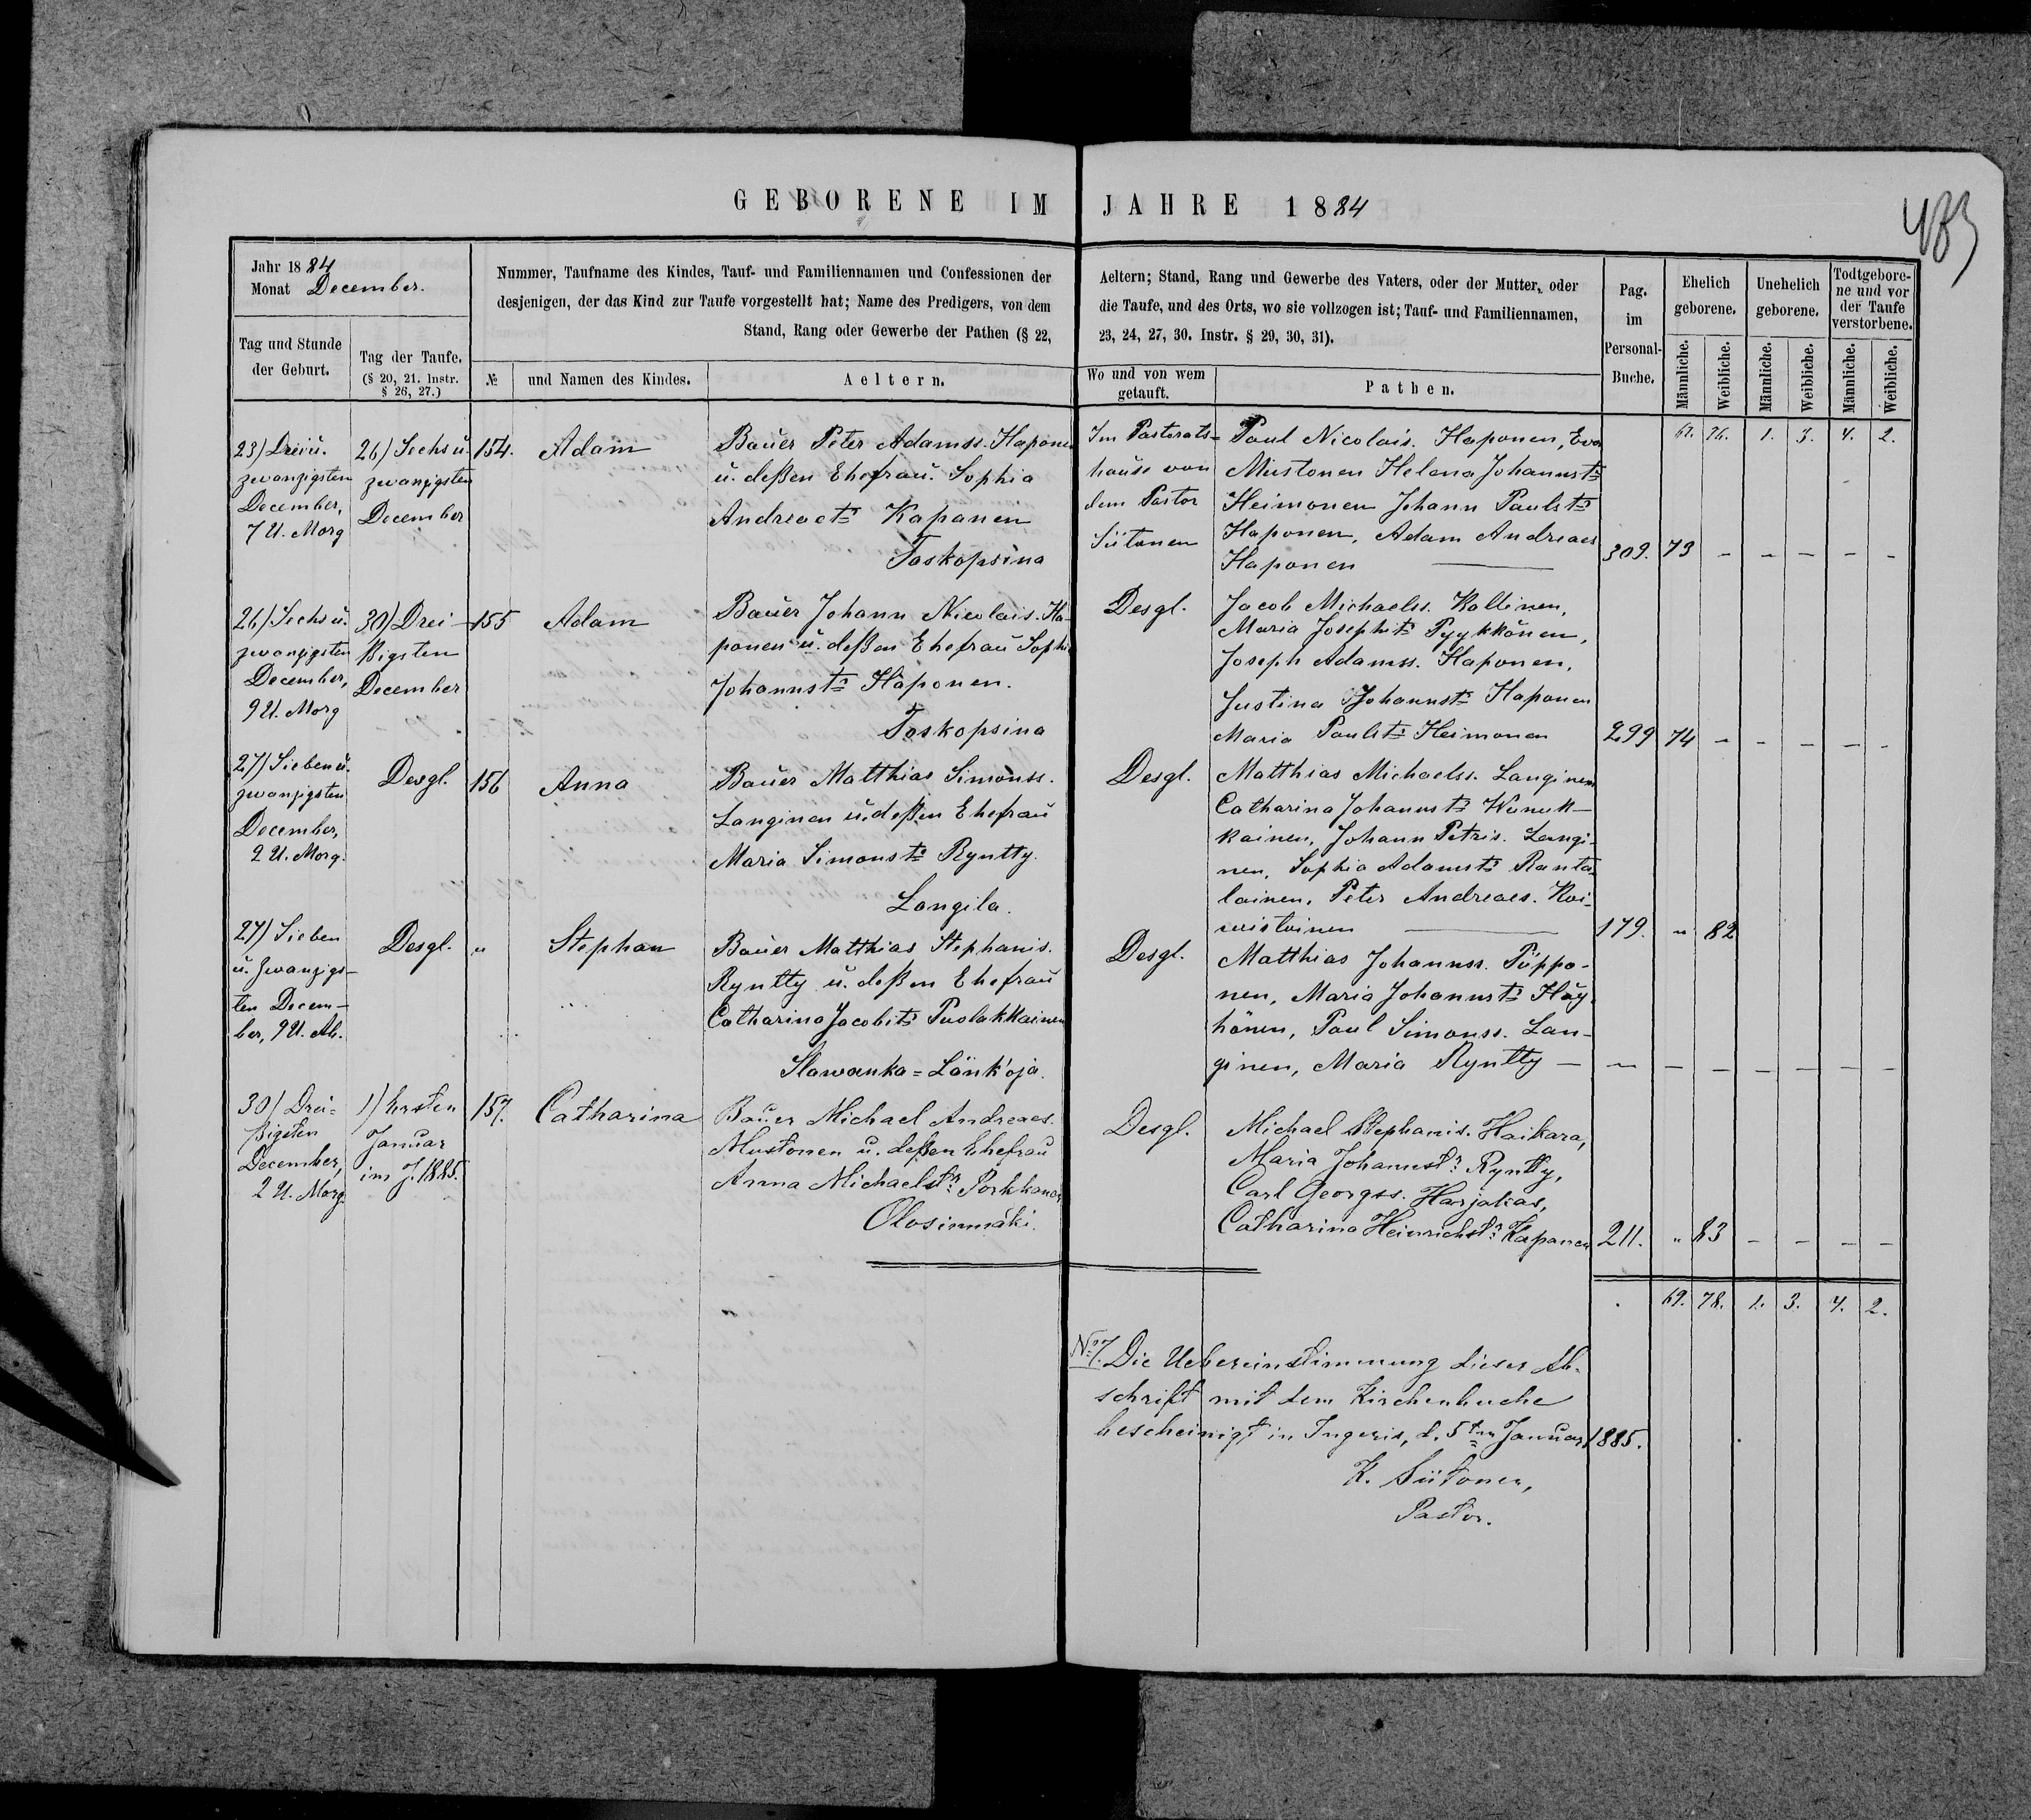 GEBORENE IM JAHRE 1884
483
Jahr 1884
Monat December.
Nummer, Taufname des Kindes, Tauf- und Familiennamen und Confessionen der
desjenigen, der das Kind zur Taufe vorgestellt hat; Name des Predigers, von dem
Stand, Rang oder Gewerbe der Pathen (§ 22,
Aeltern; Stand, Rang und Gewerbe des Vaters, oder der Mutter, oder
die Taufe, und des Orts, wo sie vollzogen ist; Tauf- und Familiennamen,
23, 24, 27, 30. Instr. § 29, 30, 31).
Pag.
im
Personal-
Buche.
Ehelich
geborene.
Unehelich
geborene.
Todtgebore-
ne und vor
der Taufe
verstorbene.
Tag und Stunde
der Geburt.
Tag der Taufe.
(§ 20, 21. Instr.
§ 26, 27.)
№
und Namen des Kindes.
Aeltern.
Wo und von wem
getauft.
Pathen.
Männliche.
Weibliche.
Männliche.
Weibliche.
Männliche.
Weibliche.
67. 76. 1. 3. 4. 2.
23) Drei u.
zwanzigsten
December,
7 U. Morg
26) Sechs u.
zwanzigsten
December
154.
Adam
Bauer Peter Adamss. Haponen
u. deßen Ehefrau Sophia
Andreaets Kapanen
Toskopsina
Im Pastorats-
hause von
dem Pastor
Siitonen
Paul Nicolais. Haponen, Eva
Mustonen Helena Johannsts
Heimonen Johann Paulsts
Haponen, Adam Andreaes
Haponen
309. 73 – – – – –
26) Sechs u.
zwanzigsten
December,
9 U. Morg
30) Drei-
ßigsten
December
155
Adam
Bauer Johann Nicolais. Ha-
ponen u. deßen Ehefrau Sophi
Johannsts Haponen.
Toskopsina
Desgl.
Jacob Michaelss. Kallinen,
Maria Josephits Pyykkönen,
Joseph Adamss. Haponen,
Justina Johannsts Haponen
Maria Paulsts Heimonen
299 74 – – – – –
27) Sieben u.
zwanzigsten
December,
2 U. Morg.
Desgl.
156
Anna
Bauer Matthias Simonss.
Langinen u. deßen Ehefrau
Maria Simonsts Ryntty.
Langila.
Desgl.
Matthias Michaelss. Langinen
Catharina Johannsts
kainen, Johann Petris. Langi-
nen, Sophia Adamsts Ranta-
lainen, Peter Andreaes. Koi-
wistoinen
179. " 82
27) Sieben
u. zwanzigs-
ten Decem-
ber, 9 U. Ab.
Desgl.
"
Stephan
Bauer Matthias Stephanis.
Ryntty u. deßen Ehefrau
Catharina Jacobits Puolakkainen
Slawanka=Länk'oja.
Desgl.
Matthias Johannss. Pöppö-
nen, Maria Johannsts Häy-
hänen, Paul Simonss. Lan-
ginen, Maria Ryntty –
– – – – – – –
30) Drei-
ßigsten
December,
2 U. Morg.
1) Ersten
Januar
im J. 1885.
157.
Catharina
Bauer Michael Andreaes.
Mustonen u. deßen Ehefrau
Anna Michaelstr. Porkkanen
Olosinmäki.
Desgl.
Michael Stephanis. Haikara,
Maria Johannstr. Ryntty,
Carl Georgss. Harjakas,
Catharina Heinrichstr. Kapanen
211. " 83 – – – –
69. 78. 1. 3. 4. 2.
No 7. Die Uebereinstimmung dieser Ab-
schrift mit dem Kirchenbuche
bescheinigt in Ingeris, d. 5ten Januar 1885.
K. Siitonen,
Pastor.